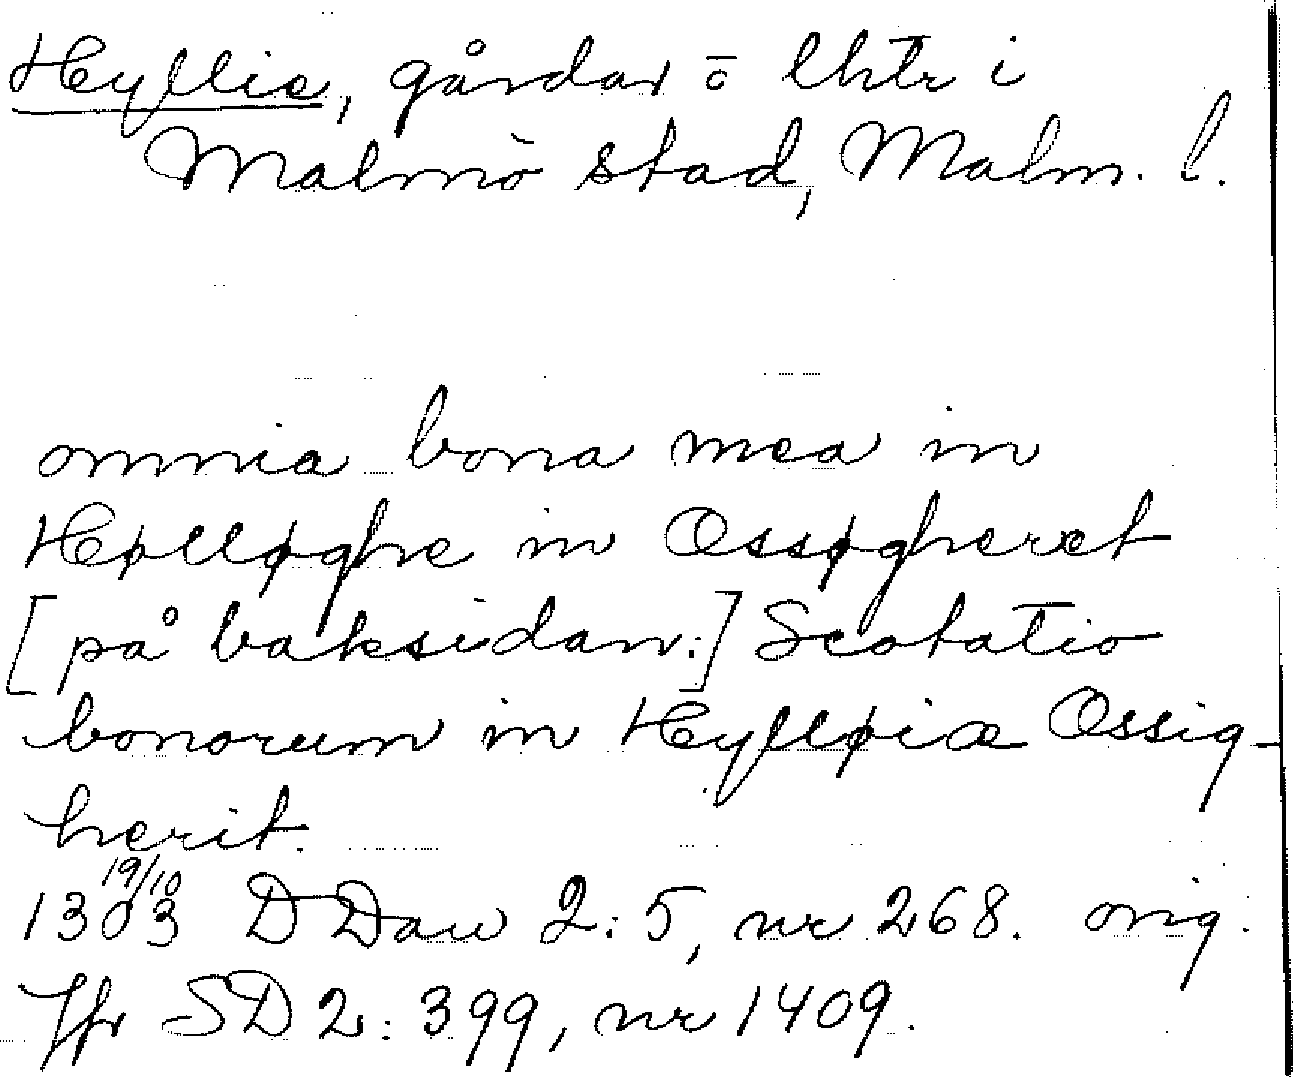 Hyllie, gårdar o lhtr i
Malmö stad, Malm. l.
omnia bona mea in
Hølløghe in Ossøgheret
[på baksidan:] Scotatio
bonorum in Hylløiæ Ossig-
herit.
1303 19/10 DDan 2:5, nr 268. orig.
Jfr SD 2:399, nr 1409.